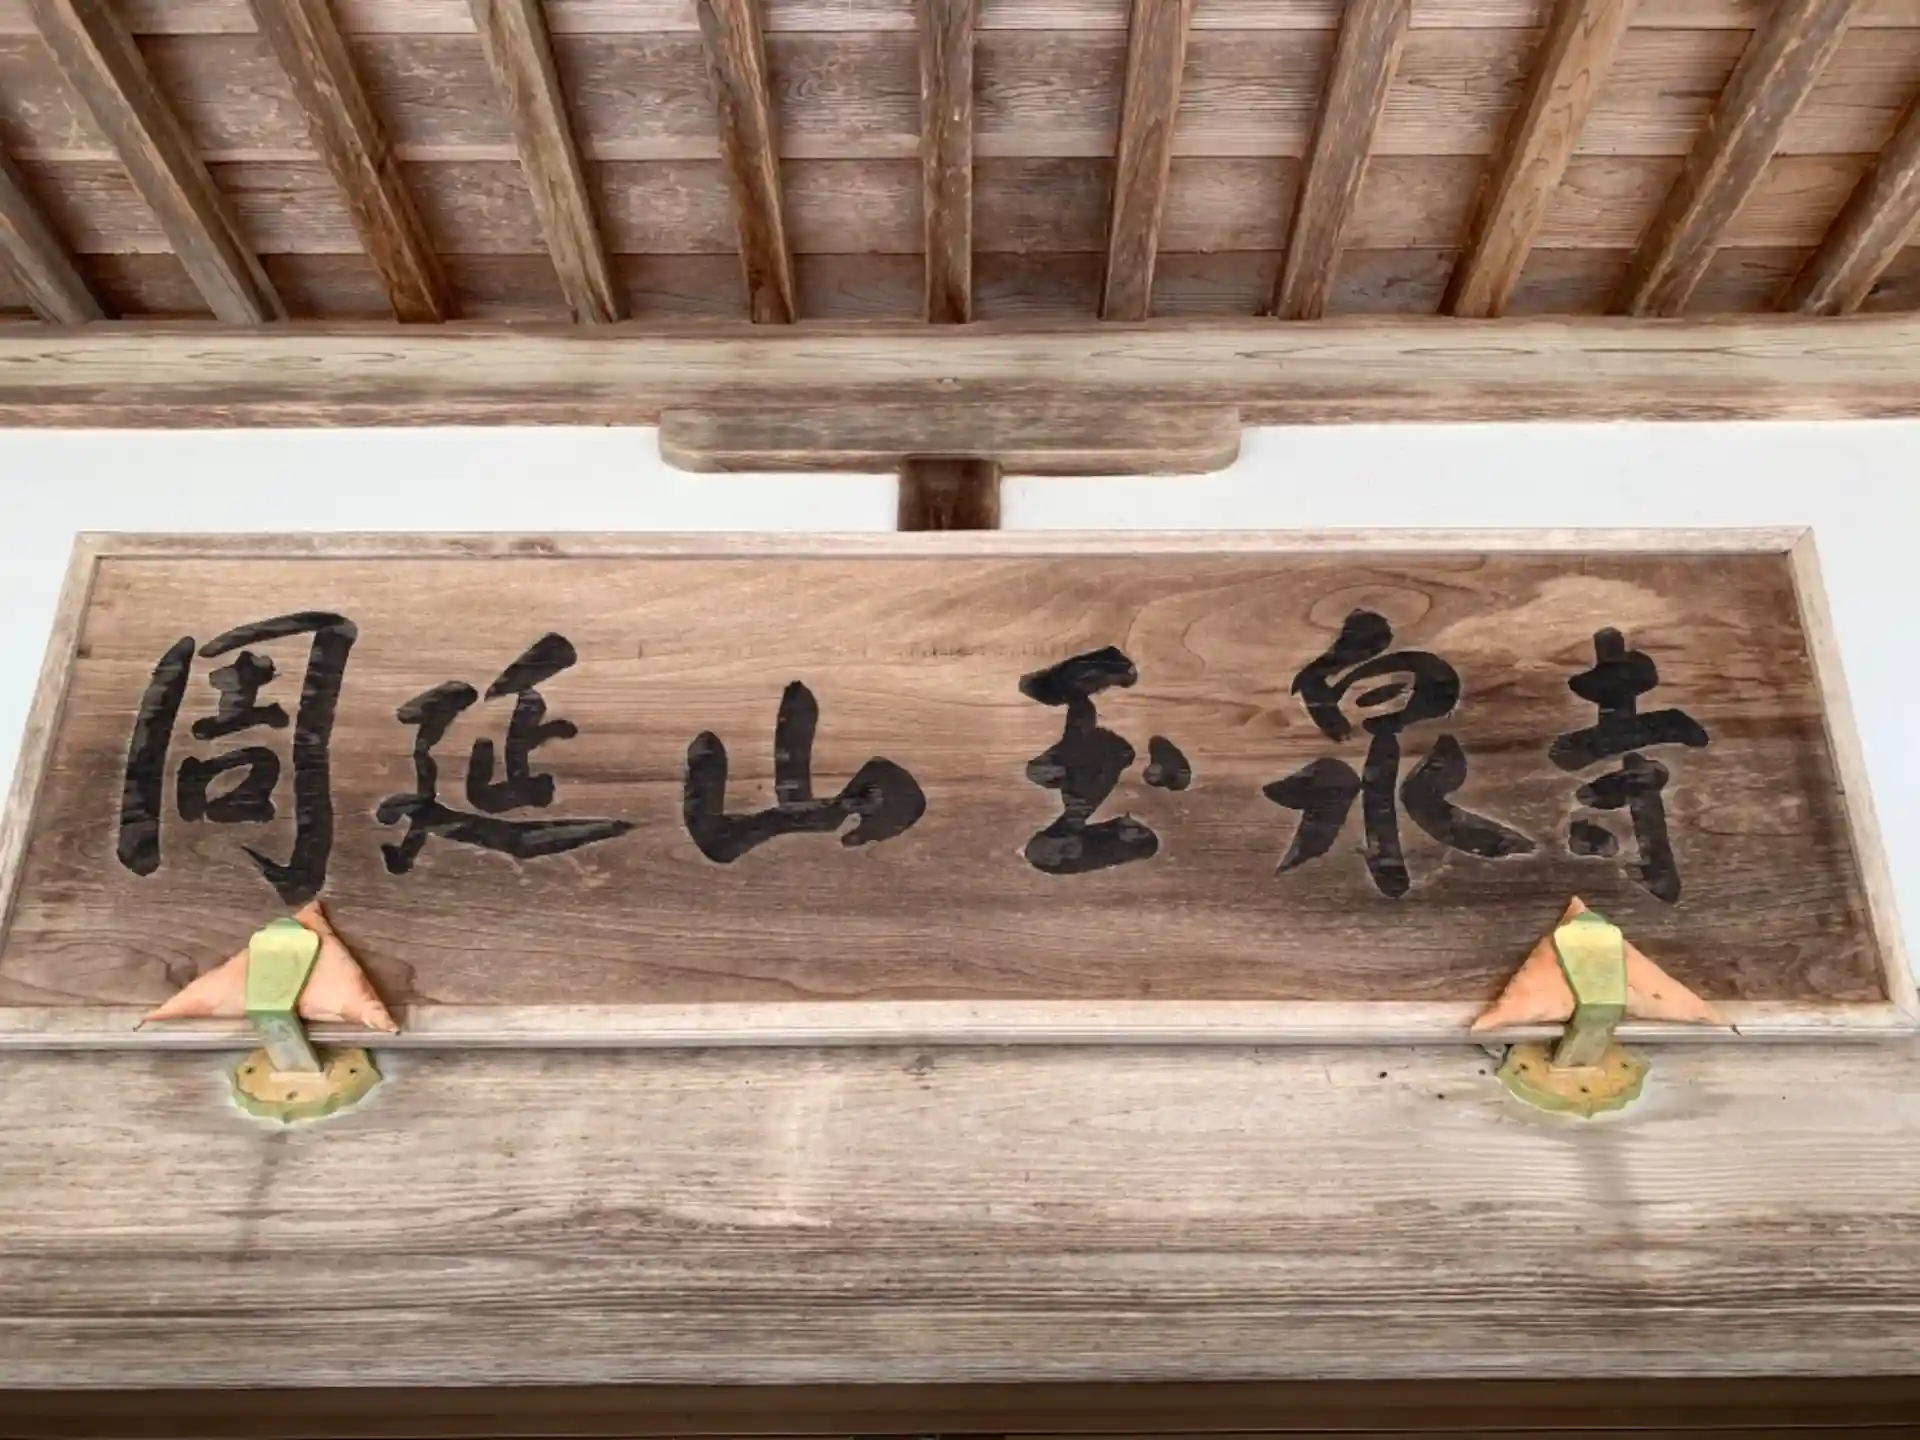 周延山玉泉寺